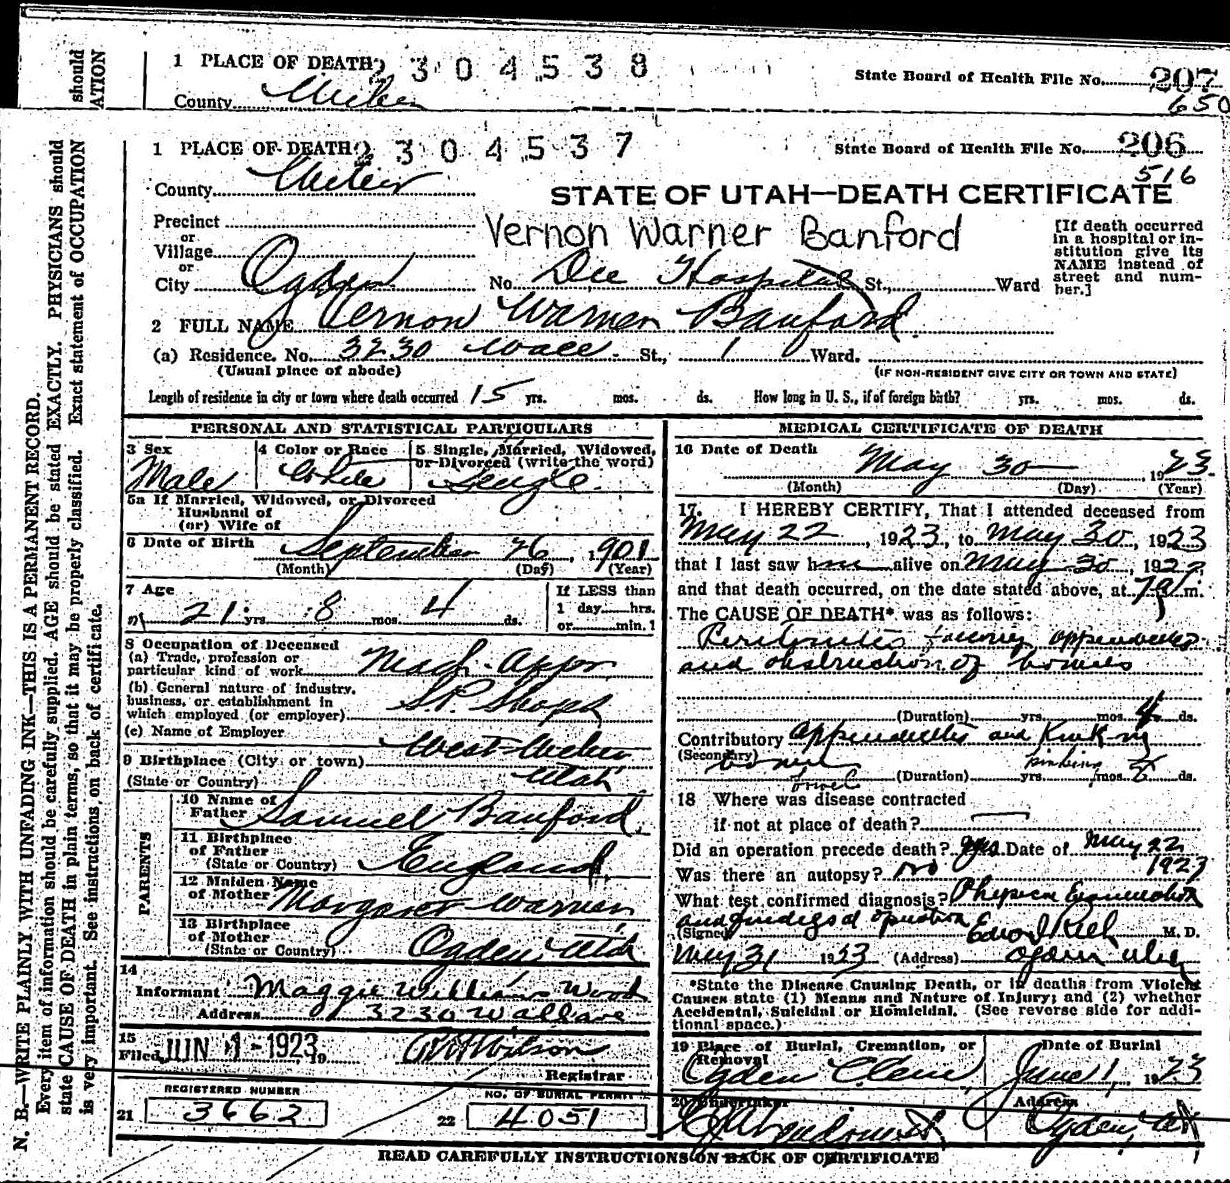 should
ATION
1 PLACE OF DEATH 304538 State Board of Health File No. 207
County Weber 650
1 PLACE OF DEATH 304537 State Board of Health File No. 206
516
County Weber
STATE OF UTAH—DEATH CERTIFICATE
Precinct
or
Village
or
City Ogden
Vernon Warner Banford
No. Dee Hospital St., Ward
[If death occurred
in a hospital or in-
stitution give its
NAME instead of
street and num-
ber.]
2 FULL NAME Vernon Warner Banford
(a) Residence. No. 3230 Wall St., 1 Ward.
(Usual place of abode) (IF NON-RESIDENT GIVE CITY OR TOWN AND STATE)
Length of residence in city or town where death occurred 15 yrs. mos. ds. How long in U. S., if of foreign birth? yrs. mos. ds.
PERSONAL AND STATISTICAL PARTICULARS
3 Sex
Male
4 Color or Race
White
5 Single, Married, Widowed,
or Divorced (write the word)
Single
5a If Married, Widowed, or Divorced
Husband of
(or) Wife of
6 Date of Birth September 26, 1901
(Month) (Day) (Year)
7 Age
21 yrs. 8 mos. 4 ds.
If LESS than
1 day hrs.
or min.
8 Occupation of Deceased
(a) Trade, profession or
particular kind of work Mach. Appr.
(b) General nature of industry,
business, or establishment in
which employed (or employer) S.P. Shops
(c) Name of Employer
9 Birthplace (City or town) West Weber
(State or Country) Utah
PARENTS
10 Name of
Father Samuel Banford
11 Birthplace
of Father
(State or Country) England
12 Maiden Name
of Mother Margaret Warner
13 Birthplace
of Mother
(State or Country) Ogden, Utah
14
Informant Maggie Williams Wood
Address 3230 Wallave
15
Filed JUN 1-1923 19 Wilson
Registrar
REGISTERED NUMBER
21 3662
NO. OF BURIAL PERMIT
22 4051
MEDICAL CERTIFICATE OF DEATH
16 Date of Death
May 30 1923
(Month) (Day) (Year)
17. I HEREBY CERTIFY, That I attended deceased from
May 22, 1923, to May 30, 1923
that I last saw him alive on May 30, 1923
and that death occurred, on the date stated above, at m.
The CAUSE OF DEATH* was as follows:
Peritonitis appendicitis
and obstruction of bowels
(Duration) yrs. mos. 4 ds.
Contributory appendicitis and kinking
(Secondary) bowel kinking
bowel (Duration) yrs. mos. ds.
18 Where was disease contracted
if not at place of death?
Did an operation precede death? yes Date of May 22
1923
Was there an autopsy? No
What test confirmed diagnosis? Physical Examination
and findings at operation
(Signed) Edw. I. Rich M. D.
May 31 1923 (Address) Ogden Utah
*State the Disease Causing Death, or in deaths from Violent
Causes state (1) Means and Nature of Injury; and (2) whether
Accidental, Suicidal or Homicidal. (See reverse side for addi-
tional space.)
19 Place of Burial, Cremation, or
Removal
Ogden Cem
Date of Burial
June 1, 1923
20 Undertaker
Address
Ogden, Ut.
READ CAREFULLY INSTRUCTIONS ON BACK OF CERTIFICATE
N. B.—WRITE PLAINLY WITH UNFADING INK—THIS IS A PERMANENT RECORD.
Every item of information should be carefully supplied. AGE should be stated EXACTLY. PHYSICIANS should
state CAUSE OF DEATH in plain terms, so that it may be properly classified. Exact statement of OCCUPATION
is very important. See instructions on back of certificate.